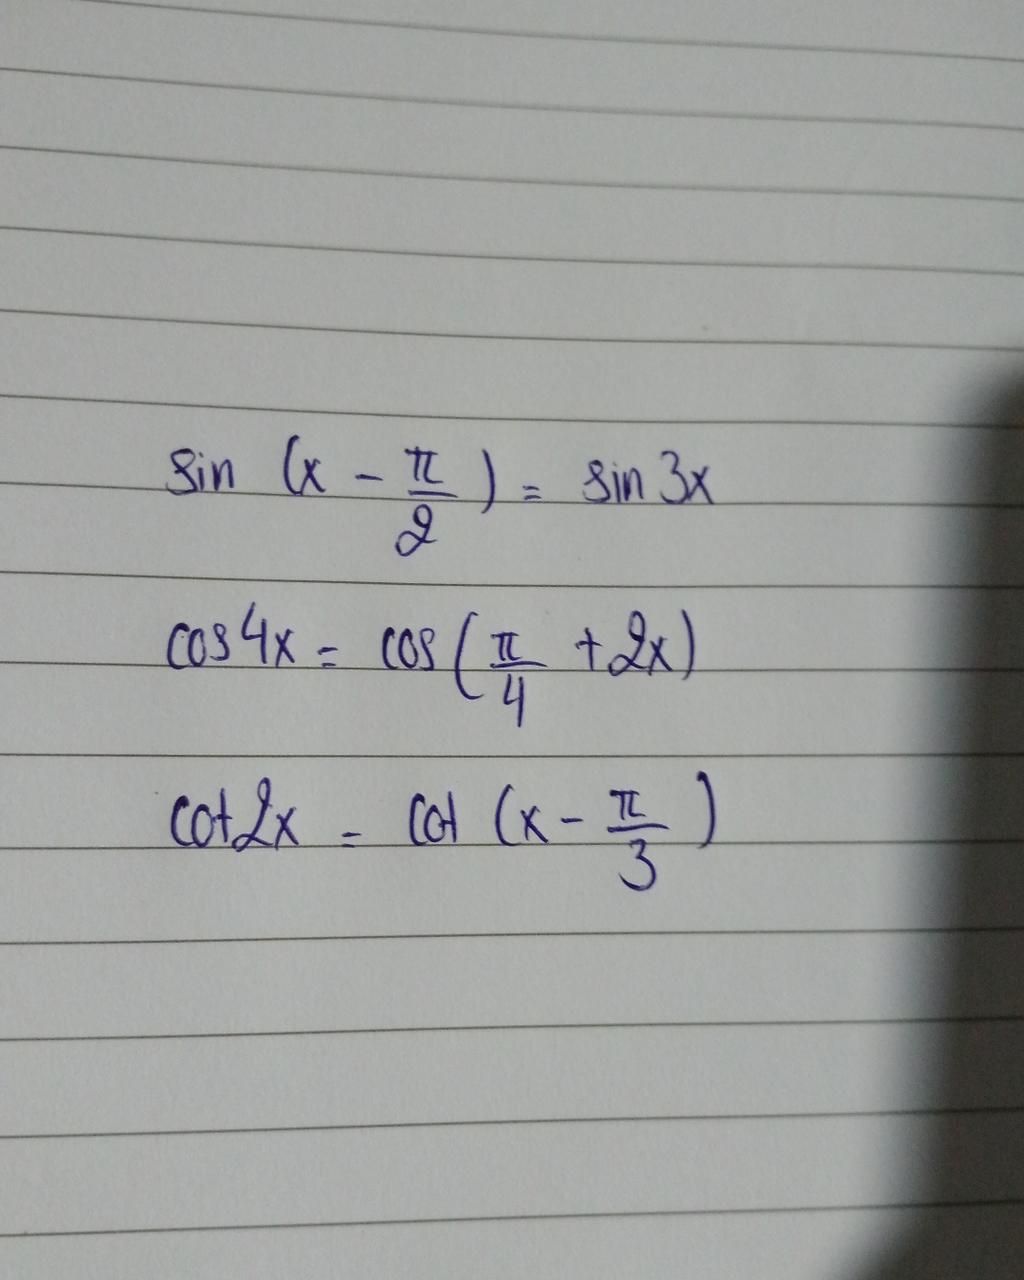 sin (x - π/2) = sin 3x
cos 4x = cos (π/4 + 2x)
cot 2x = cot (x - π/3)